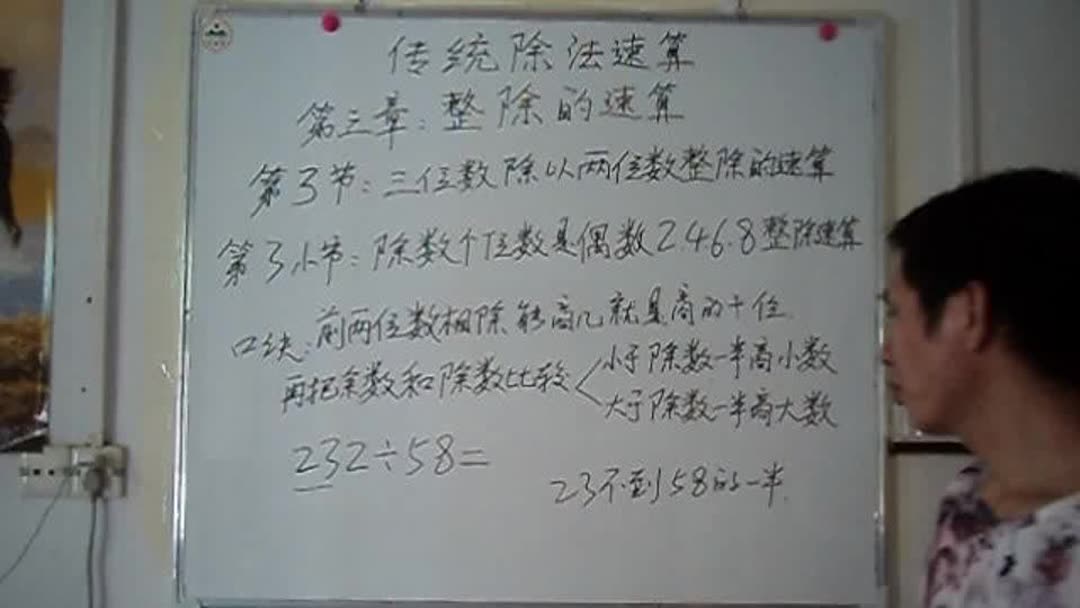 传统除法速算
第三章:整除的速算
第3节:三位数除以两位数整除的速算
第3小节:除数个位数是偶数2.4.6.8整除速算
口诀:前两位数相除能商几就是商的十位.
再把余数和除数比较
小于除数一半商小数
大于除数一半商大数
232÷58=
23不到58的一半.